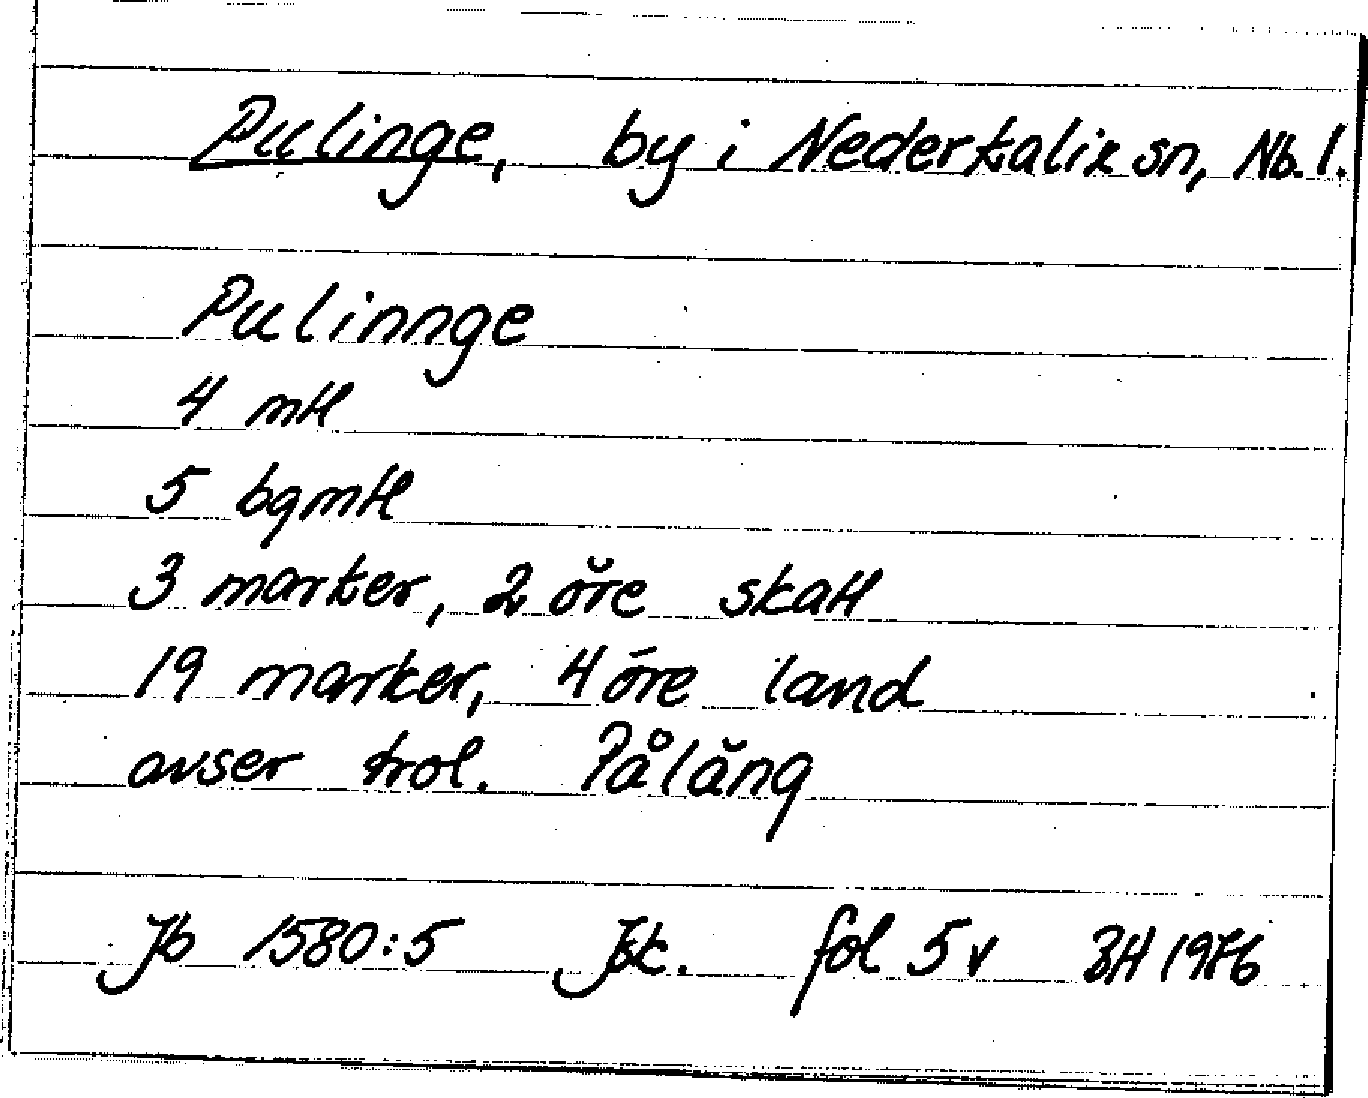 Pulinge, by i Nederkalix sn, Nb. l.
Pulinnge
4 mtl
5 bgmtl
3 marker, 2 öre skatt
19 marker, 4 öre land
avser trol. Påläng
Jb 1580:5 Jbk. fol 5v 1976